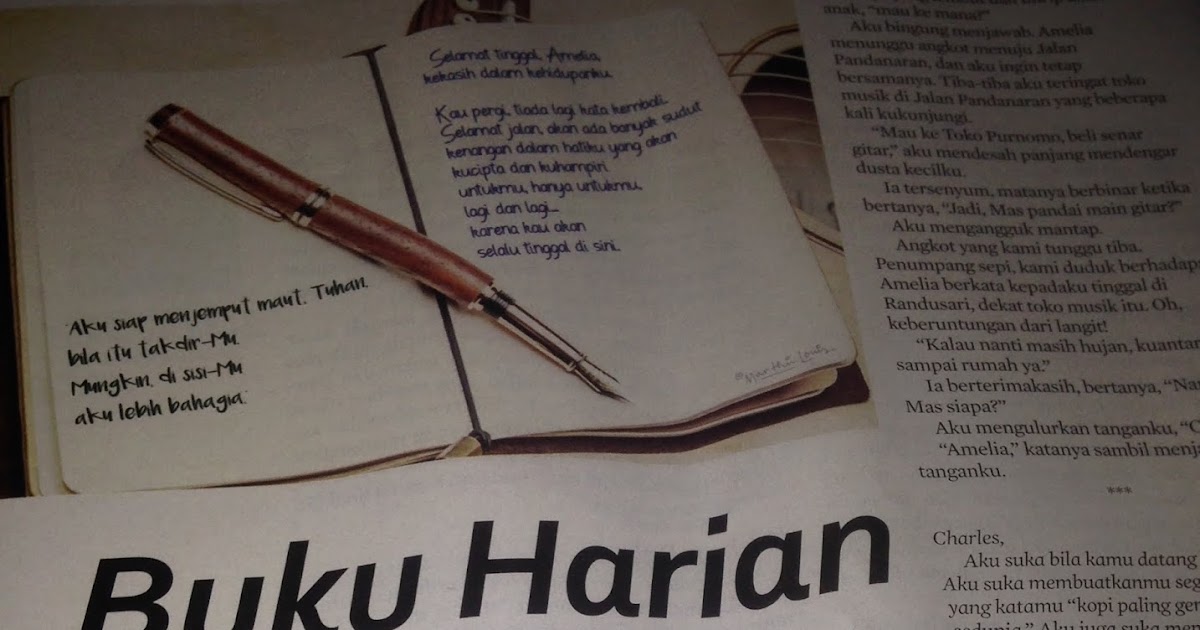 Selamat tinggal, Amelia,
kekasih dalam kehidupanku.
Kau pergi, tiada lagi kata kembali.
Selamat jalan, akan ada banyak sudut
kenangan dalam hatiku yang akan
kucipta dan kuhampiri
untukmu, hanya untukmu,
lagi dan lagi...
karena kau akan
selalu tinggal di sini.
Aku siap menjemput maut, Tuhan,
bila itu takdir-Mu.
Mungkin, di sisi-Mu
aku lebih bahagia.
Buku Harian
anak, "mau ke mana?"
Aku bingung menjawab. Amelia
menunggu angkot menuju Jalan
Pandanaran, dan aku ingin tetap
bersamanya. Tiba-tiba aku teringat toko
musik di Jalan Pandanaran yang beberapa
kali kukunjungi.
"Mau ke Toko Purnomo, beli senar
gitar," aku mendesah panjang mendengar
dusta kecilku.
Ia tersenyum, matanya berbinar ketika
bertanya, "Jadi, Mas pandai main gitar?"
Aku mengangguk mantap.
Angkot yang kami tunggu tiba.
Penumpang sepi, kami duduk berhadap
Amelia berkata kepadaku tinggal di
Randusari, dekat toko musik itu. Oh,
keberuntungan dari langit!
"Kalau nanti masih hujan, kuantar
sampai rumah ya."
Ia berterimakasih, bertanya, "Na
Mas siapa?"
Aku mengulurkan tanganku, "C
"Amelia," katanya sambil menja
tanganku.
***
Charles,
Aku suka bila kamu datang
Aku suka membuatkanmu seg
yang katamu "kopi paling ger
sedunia." Aku juga suka men